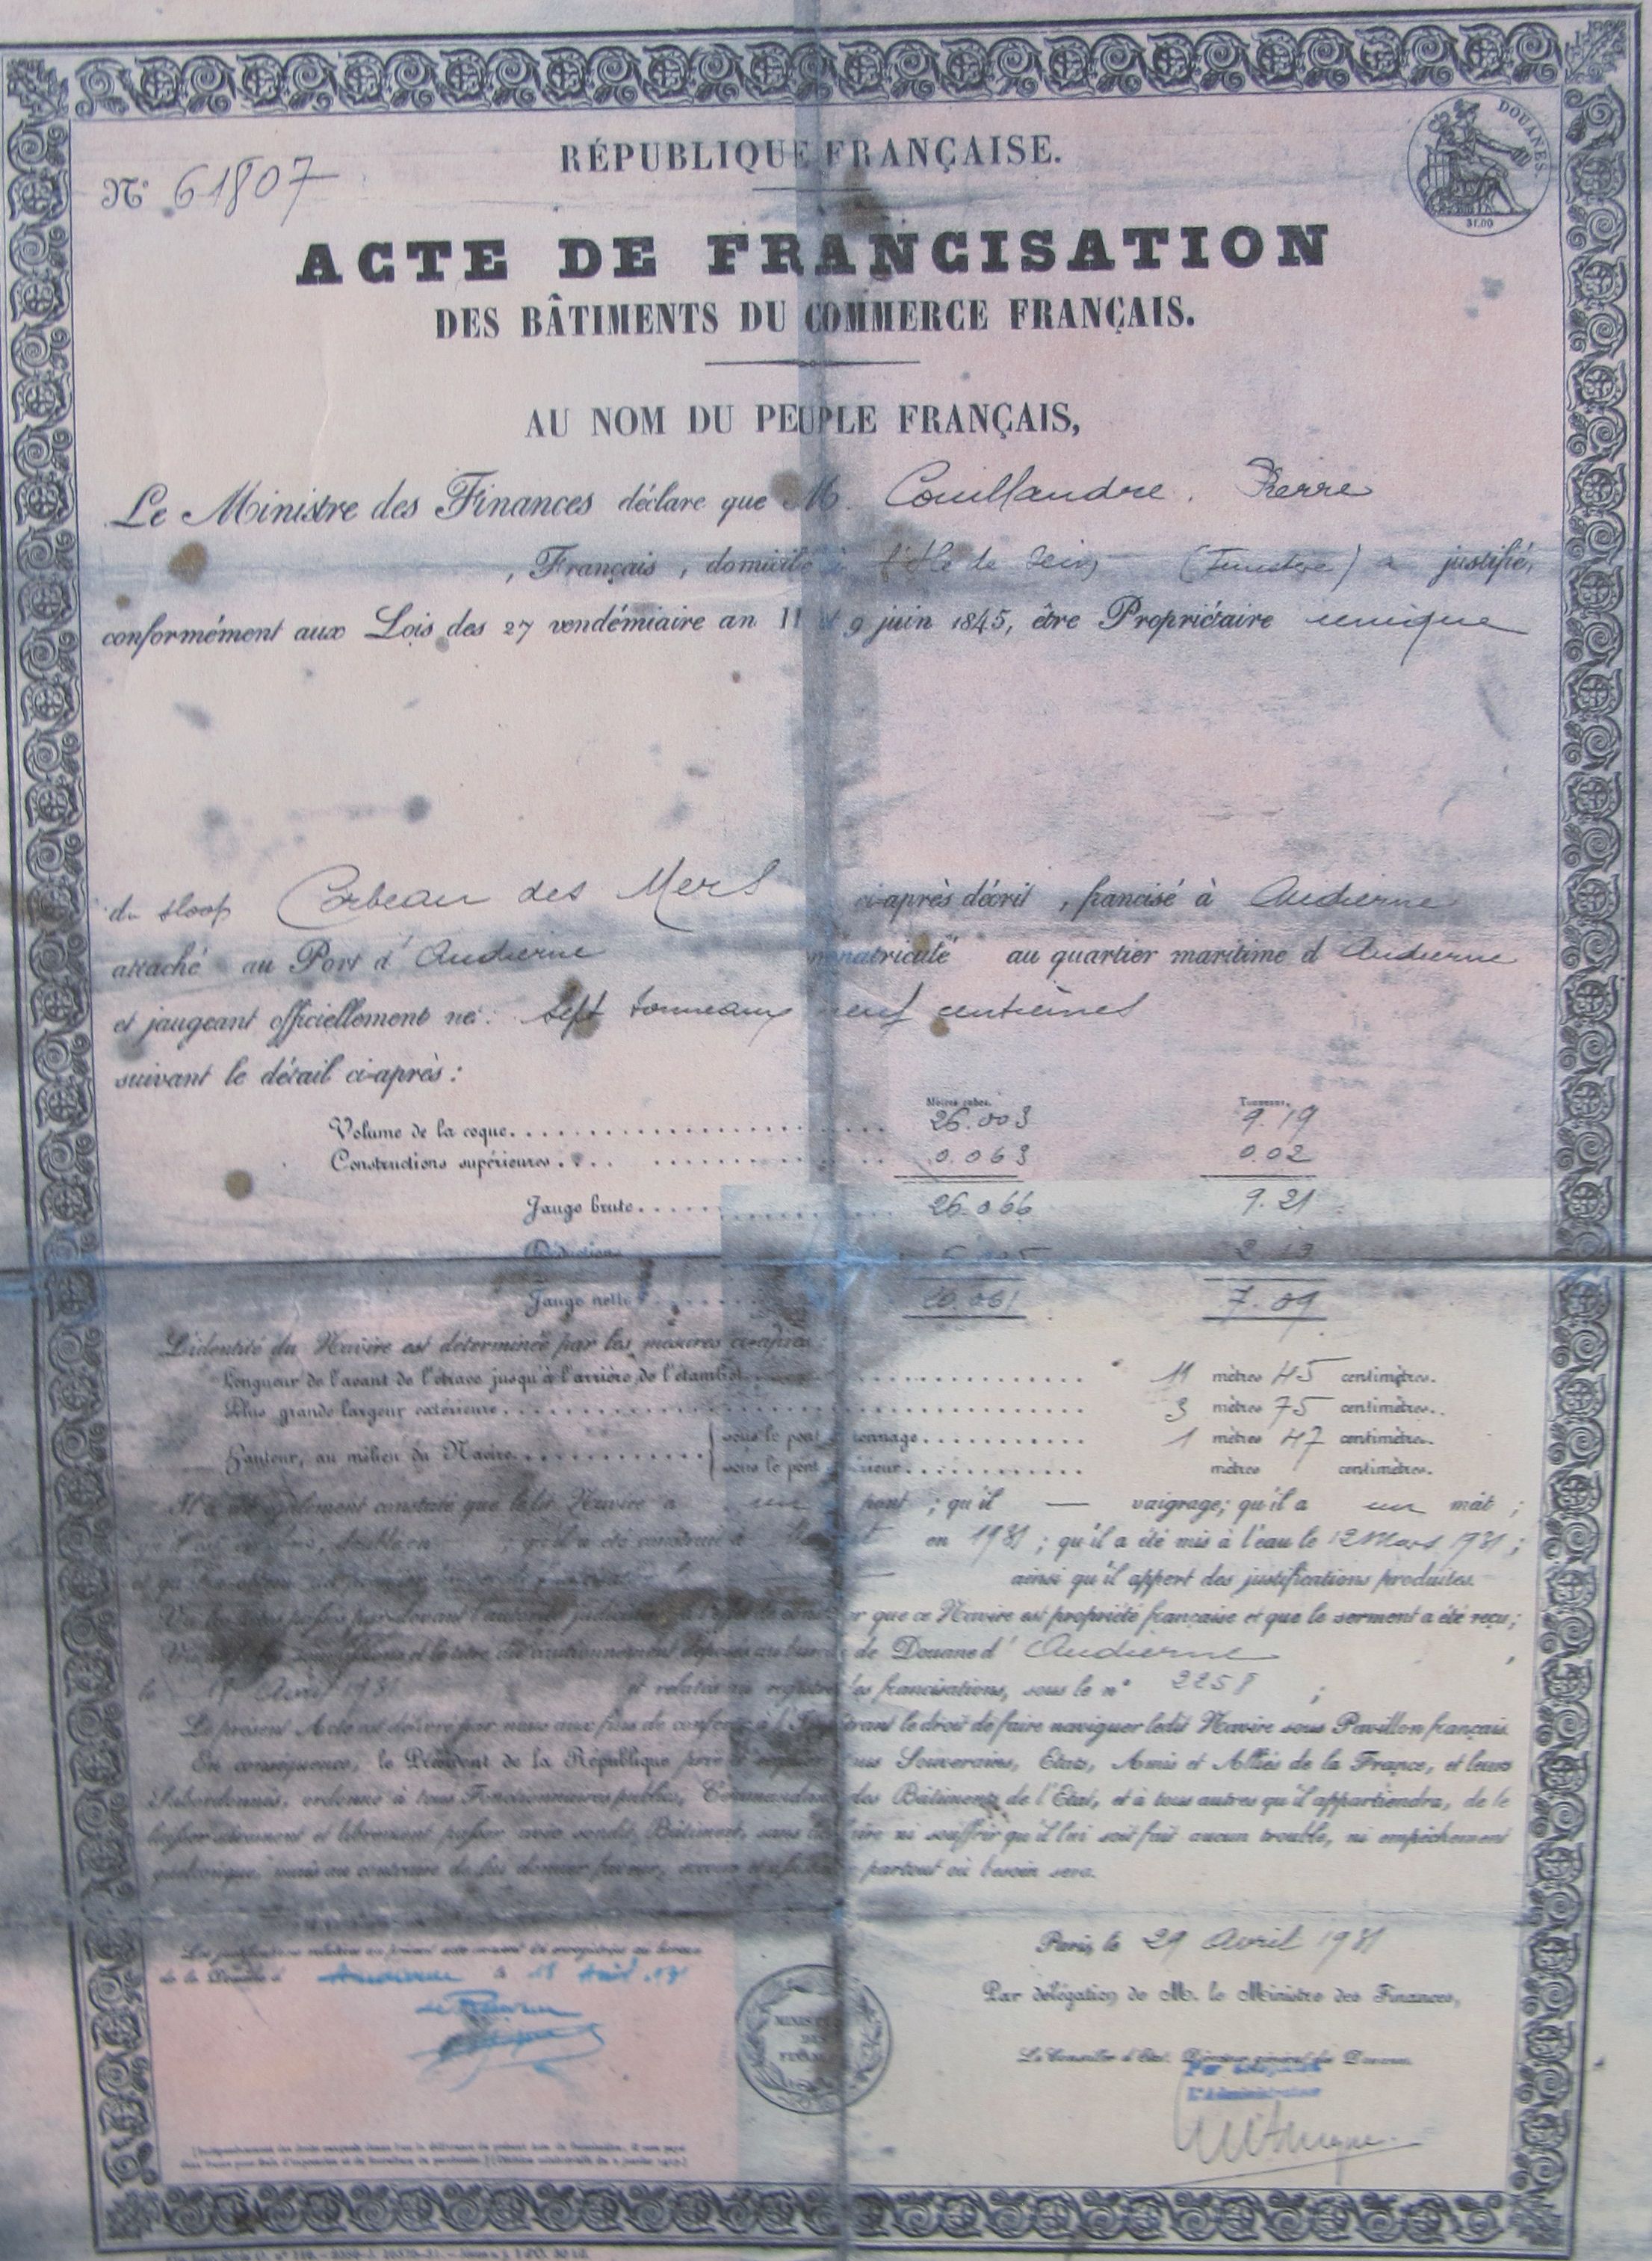 RÉPUBLIQUE FRANÇAISE.
DOUANES
N° 61807
ACTE DE FRANCISATION
DES BÂTIMENTS DU COMMERCE FRANÇAIS.
AU NOM DU PEUPLE FRANÇAIS,
Le Ministre des Finances déclare que M. Couillandre, Pierre
, Français, domicilié à l'Ile de Sein (Finistère) a justifié,
conformément aux Lois des 27 vendémiaire an II et 9 juin 1845, être Propriétaire unique
du sloop Corbeau des Mers ci-après décrit, francisé à Audierne
attaché au Port d'Audierne immatriculé au quartier maritime d'Audierne
et jaugeant officiellement net: sept tonneaux neuf centièmes
suivant le détail ci-après:
Mètres cubes. Tonneaux.
Volume de la coque 26.003 9.19
Constructions supérieures 0.063 0.02
Jauge brute 26.066 9.21
Déductions
Jauge nette 20.061 7.09
L'identité du Navire est déterminée par les mesures ci-après:
Longueur de l'avant de l'étrave jusqu'à l'arrière de l'étambot 11 mètres 45 centimètres.
Plus grande largeur extérieure 3 mètres 75 centimètres.
Hauteur, au milieu du Navire sous le pont de tonnage 1 mètres 47 centimètres.
sous le pont supérieur mètres centimètres.
Il a été également constaté que ledit Navire a un pont; qu'il — vaigrage; qu'il a un mât;
en 1931; qu'il a été mis à l'eau le 12 Mars 1931;
ainsi qu'il appert des justifications produites.
que ce Navire est propriété française et que le serment a été reçu;
de Douane d'Audierne,
le Avril 1931 et relatés au registre des francisations, sous le n° 2258;
Le présent Acte est délivré par nous aux fins de conférer à l' le droit de faire naviguer ledit Navire sous Pavillon français.
En conséquence, le Président de la République prie et requiert tous Souverains, États, Amis et Alliés de la France, et leurs
Subordonnés, ordonne à tous Fonctionnaires publics, Commandants des Bâtiments de l'État, et à tous autres qu'il appartiendra, de le
laisser sûrement et librement passer avec sondit Bâtiment, sans lui faire ni souffrir qu'il lui soit fait aucun trouble, ni empêchement
quelconque, mais au contraire de lui donner faveur, secours et assistance partout où besoin sera.
Paris, le 29 Avril 1931
Les justifications relatives au présent acte avaient été enregistrées au bureau
de la Douane d'Audierne le 18 Avril 31
Par délégation de M. le Ministre des Finances,
Le Conseiller d'État, Directeur général des Douanes.
L'Administrateur